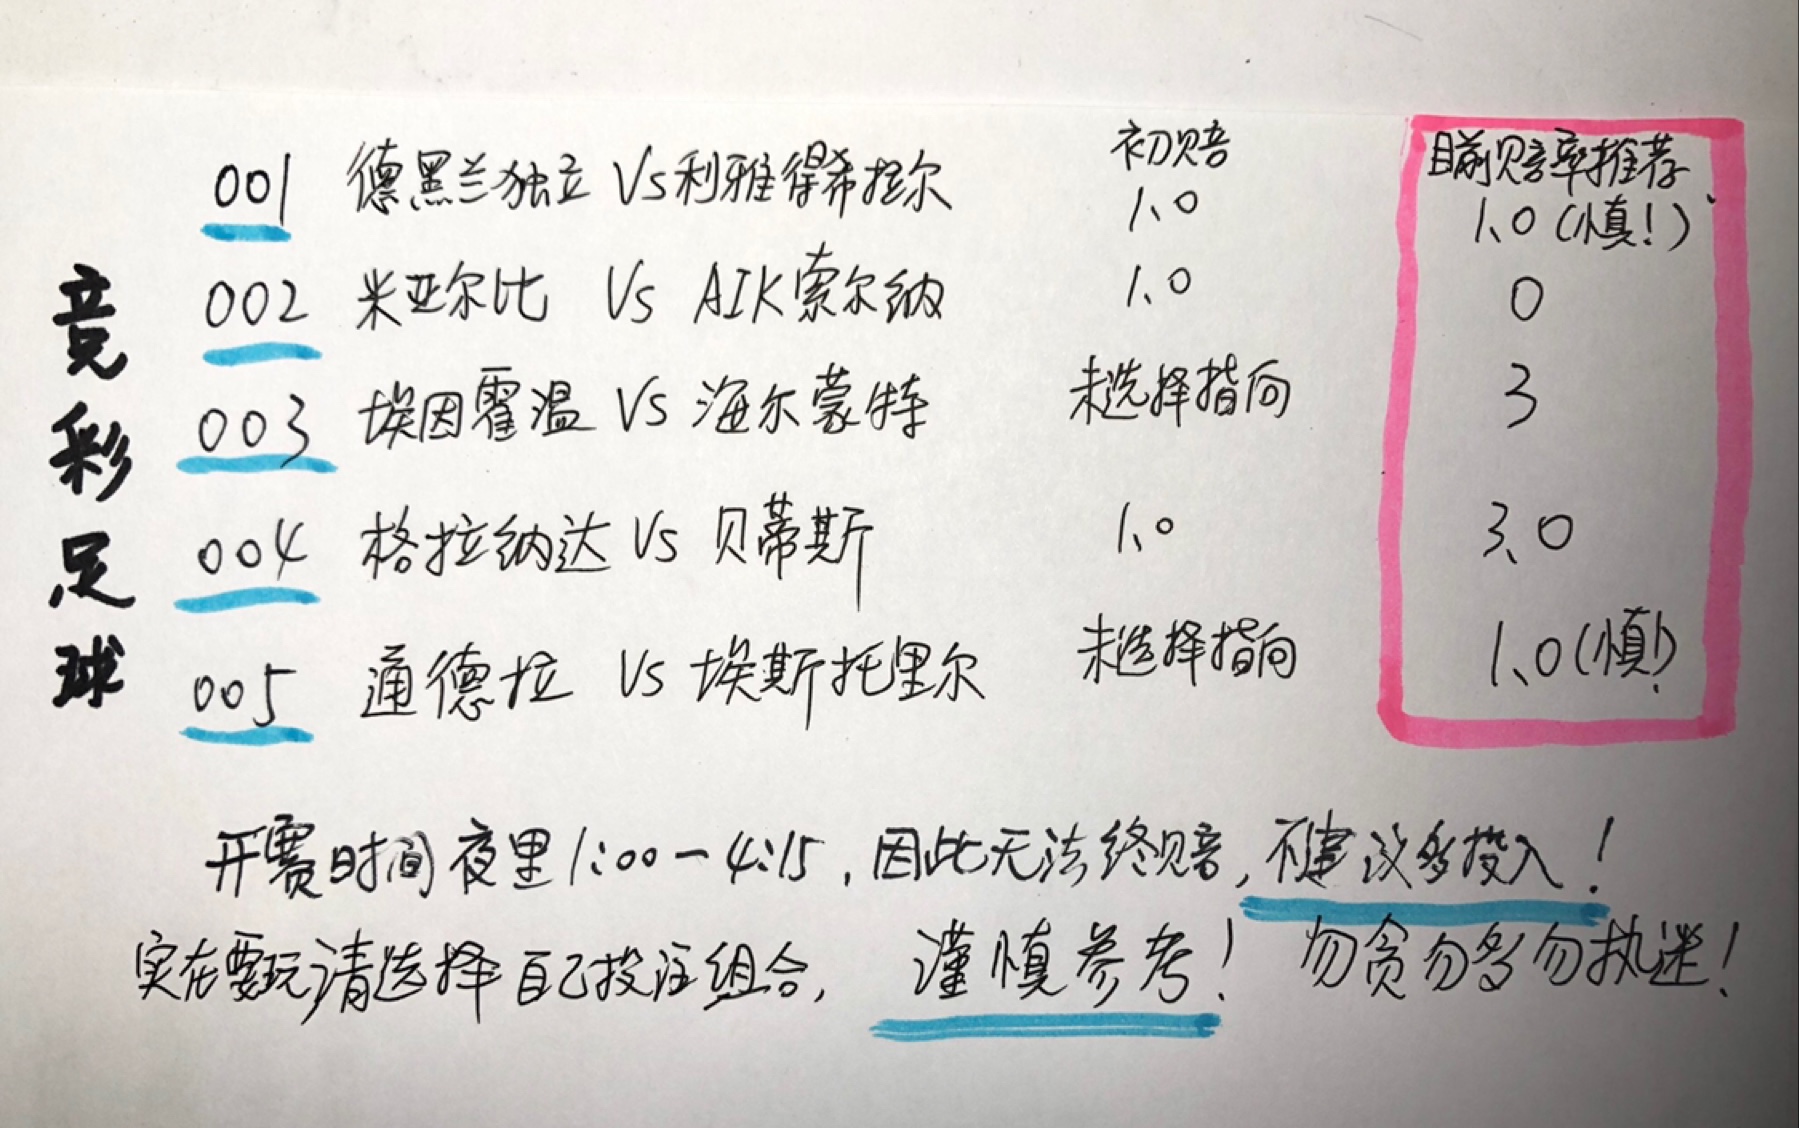 竞彩足球
初赔 目前赔率推荐
001 德黑兰独立 Vs 利雅得希拉尔 1、0 1、0(慎!)
002 米亚尔比 Vs AIK索尔纳 1、0 0
003 埃因霍温 Vs 海尔蒙特 未选择指向 3
004 格拉纳达 Vs 贝蒂斯 1、0 3、0
005 通德拉 Vs 埃斯托里尔 未选择指向 1、0(慎!)
开赛时间夜里1:00-4:15,因此无法终赔,不建议多投入!
实在要玩请选择自己投注组合, 谨慎参考! 勿贪勿多勿执迷!